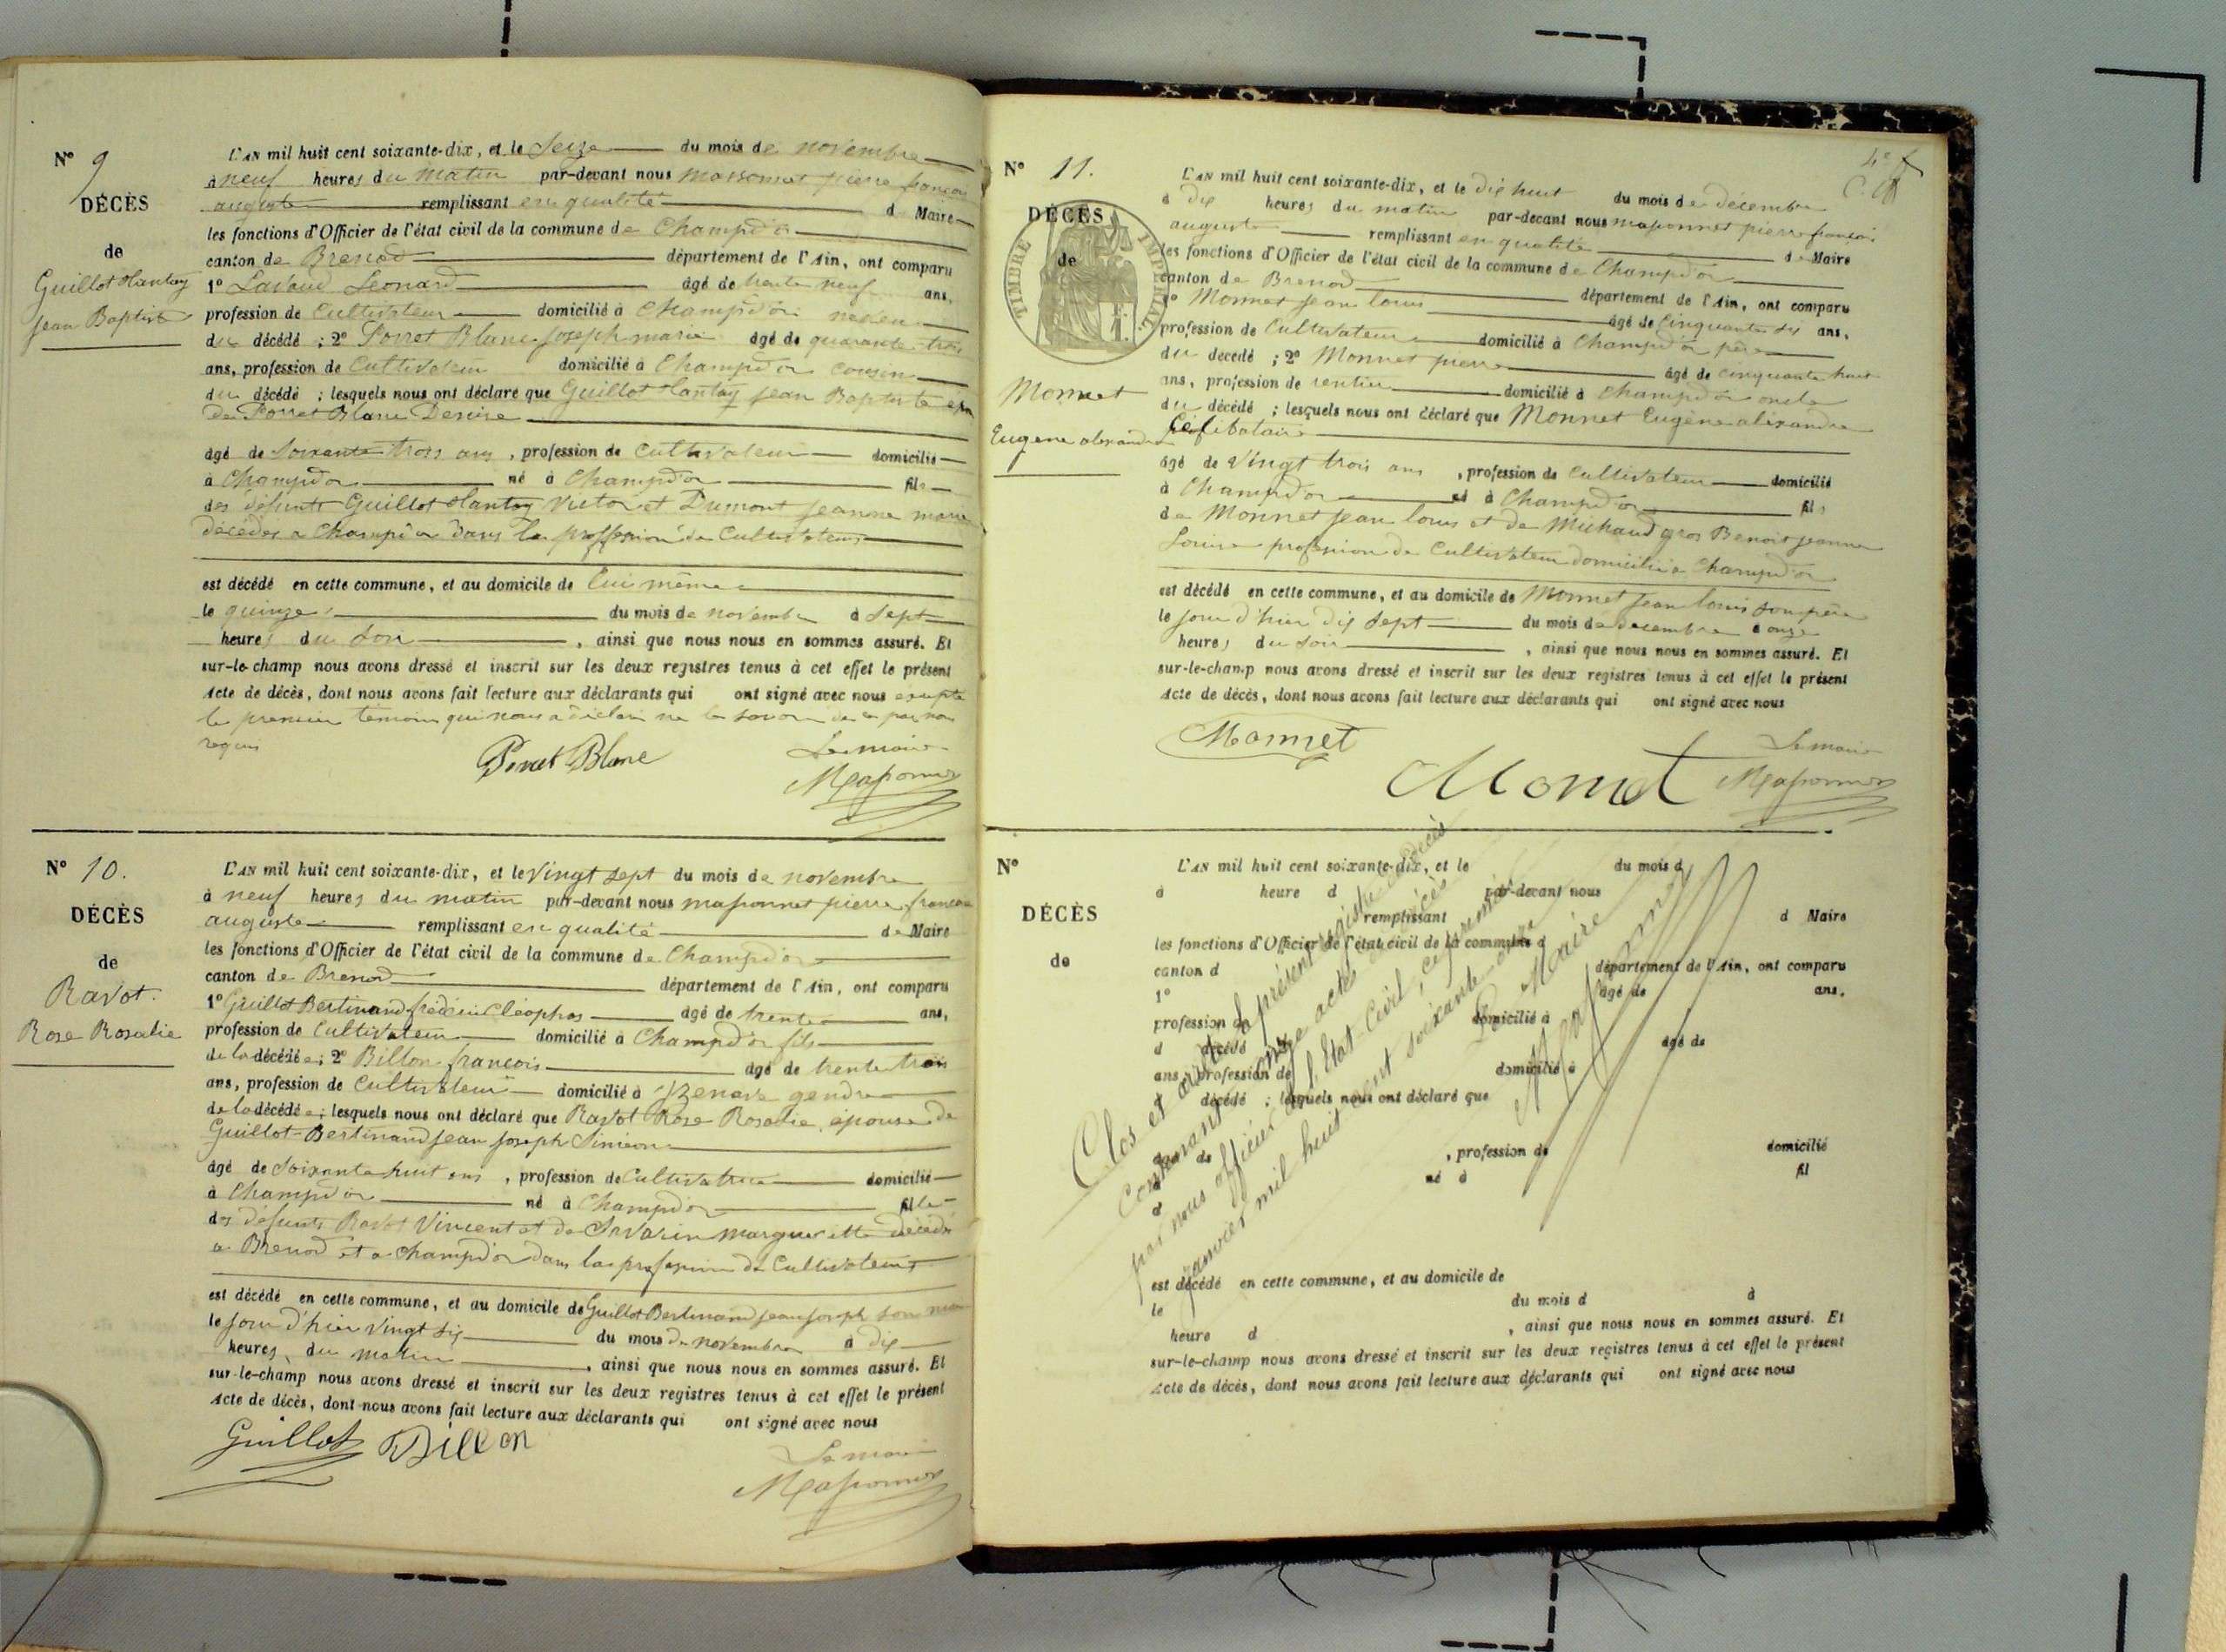 N° 9
DÉCÈS
de
Guillot Hantoy
Jean Baptiste
L'AN mil huit cent soixante-dix, et le Seize du mois de novembre
à neuf heures du matin par-devant nous massonnet pierre françois
auguste remplissant en qualité de Maire
les fonctions d'Officier de l'état civil de la commune de Champd'or
canton de Brenod département de l'Ain, ont comparu
1° Lavaud Leonard âgé de trente neuf ans,
profession de Cultivateur domicilié à Champd'or neveu
du décédé ; 2° Porret Blanc Joseph marie âgé de quarante trois
ans, profession de Cultivateur domicilié à Champd'or cousin
du décédé ; lesquels nous ont déclaré que Guillot Hantoy Jean Baptiste
de Porret Blanc Desire
âgé de Soixante trois ans, profession de Cultivateur domicilié
à Champdor né à Champd'or fils
des défunts Guillot Hantoy Victor et Dumont Jeanne marie
décédés a Champd'or dans la proffession de Cultivateurs
est décédé en cette commune, et au domicile de lui même
le quinze du mois de novembre à Sept
heures du Soir, ainsi que nous nous en sommes assuré. Et
sur-le-champ nous avons dressé et inscrit sur les deux registres tenus à cet effet le présent
Acte de décès, dont nous avons fait lecture aux déclarants qui ont signé avec nous excepté
le premier témoin qui nous a déclaré ne le savoir de ce par nous
requis
Porret Blanc
Le maire
Massonnet
N° 10.
DÉCÈS
de
Ravot.
Rose Rosalie
L'AN mil huit cent soixante-dix, et le Vingt Sept du mois de novembre
à neuf heures du matin par-devant nous massonnet pierre françois
auguste remplissant en qualité de Maire
les fonctions d'Officier de l'état civil de la commune de Champd'or
canton de Brenod département de l'Ain, ont comparu
1° Guillot Bertinand frédéric Cléophas âgé de trente ans,
profession de Cultivateur domicilié à Champd'or fils
de la décédée ; 2° Billon françois âgé de trente trois
ans, profession de Cultivateur domicilié à Izenave gendre
de la décédée ; lesquels nous ont déclaré que Ravot Rose Rosalie, épouse de
Guillot-Bertinand Jean Joseph Siméon
âgé de Soixante huit ans, profession de Cultivatrice domicilié
à Champd'or né à Champd'or fille
des défunts Ravot Vincent et de Savarin Marguerite décédés
a Brenod et a Champd'or dans la profession de Cultivateurs
est décédé en cette commune, et au domicile de Guillot Bertinand Jean Joseph son mari
le Jour d'hier Vingt Six du mois de novembre à dix
heures du matin, ainsi que nous nous en sommes assuré. Et
sur-le-champ nous avons dressé et inscrit sur les deux registres tenus à cet effet le présent
Acte de décès, dont nous avons fait lecture aux déclarants qui ont signé avec nous
Guillot Billon
Le maire
Massonnet
N° 11.
DÉCÈS
de
TIMBRE IMPÉRIAL
Monnet
Eugene alexandre
L'AN mil huit cent soixante-dix, et le dix huit du mois de décembre
à dix heures du matin par-devant nous massonnet pierre françois
auguste remplissant en qualité de Maire
les fonctions d'Officier de l'état civil de la commune de Champd'or
canton de Brenod département de l'Ain, ont comparu
1° Monnet Jean louis âgé de Cinquante six ans,
profession de Cultivateur domicilié à Champd'or père
du décédé ; 2° Monnet pierre âgé de cinquante huit
ans, profession de rentier domicilié à Champd'or oncle
du décédé ; lesquels nous ont déclaré que Monnet Eugène alexandre
Celibataire
âgé de Vingt trois ans, profession de Cultivateur domicilié
à Champd'or né à Champd'or fils
de Monnet Jean louis et de Michaud gros Benoit Jeanne
Louise profession de Cultivateur domicilié a Champd'or
est décédé en cette commune, et au domicile de Monnet Jean louis son père
le Jour d'hier dix Sept du mois de décembre à onze
heures du Soir, ainsi que nous nous en sommes assuré. Et
sur-le-champ nous avons dressé et inscrit sur les deux registres tenus à cet effet le présent
Acte de décès, dont nous avons fait lecture aux déclarants qui ont signé avec nous
Monnet
Monnet
Le maire
Massonnet
N°
DÉCÈS
de
L'AN mil huit cent soixante-dix, et le du mois d
à heure d par-devant nous
remplissant d Maire
les fonctions d'Officier de l'état civil de la commune d
canton d département de l'Ain, ont comparu
1° âgé de ans,
profession de domicilié à
d décédé âgé de
ans, profession de domicilié à
décédé ; lesquels nous ont déclaré que
âgé de , profession de domicilié
à né à fil
d
est décédé en cette commune, et au domicile de
le du mois d à
heure d , ainsi que nous nous en sommes assuré. Et
sur-le-champ nous avons dressé et inscrit sur les deux registres tenus à cet effet le présent
Acte de décès, dont nous avons fait lecture aux déclarants qui ont signé avec nous
Clos et arrêté le présent registre de décès
contenant onze actes de décès
par nous officier de l'État-Civil, ce premier
janvier mil huit cent soixante-onze
Le Maire
Massonnet